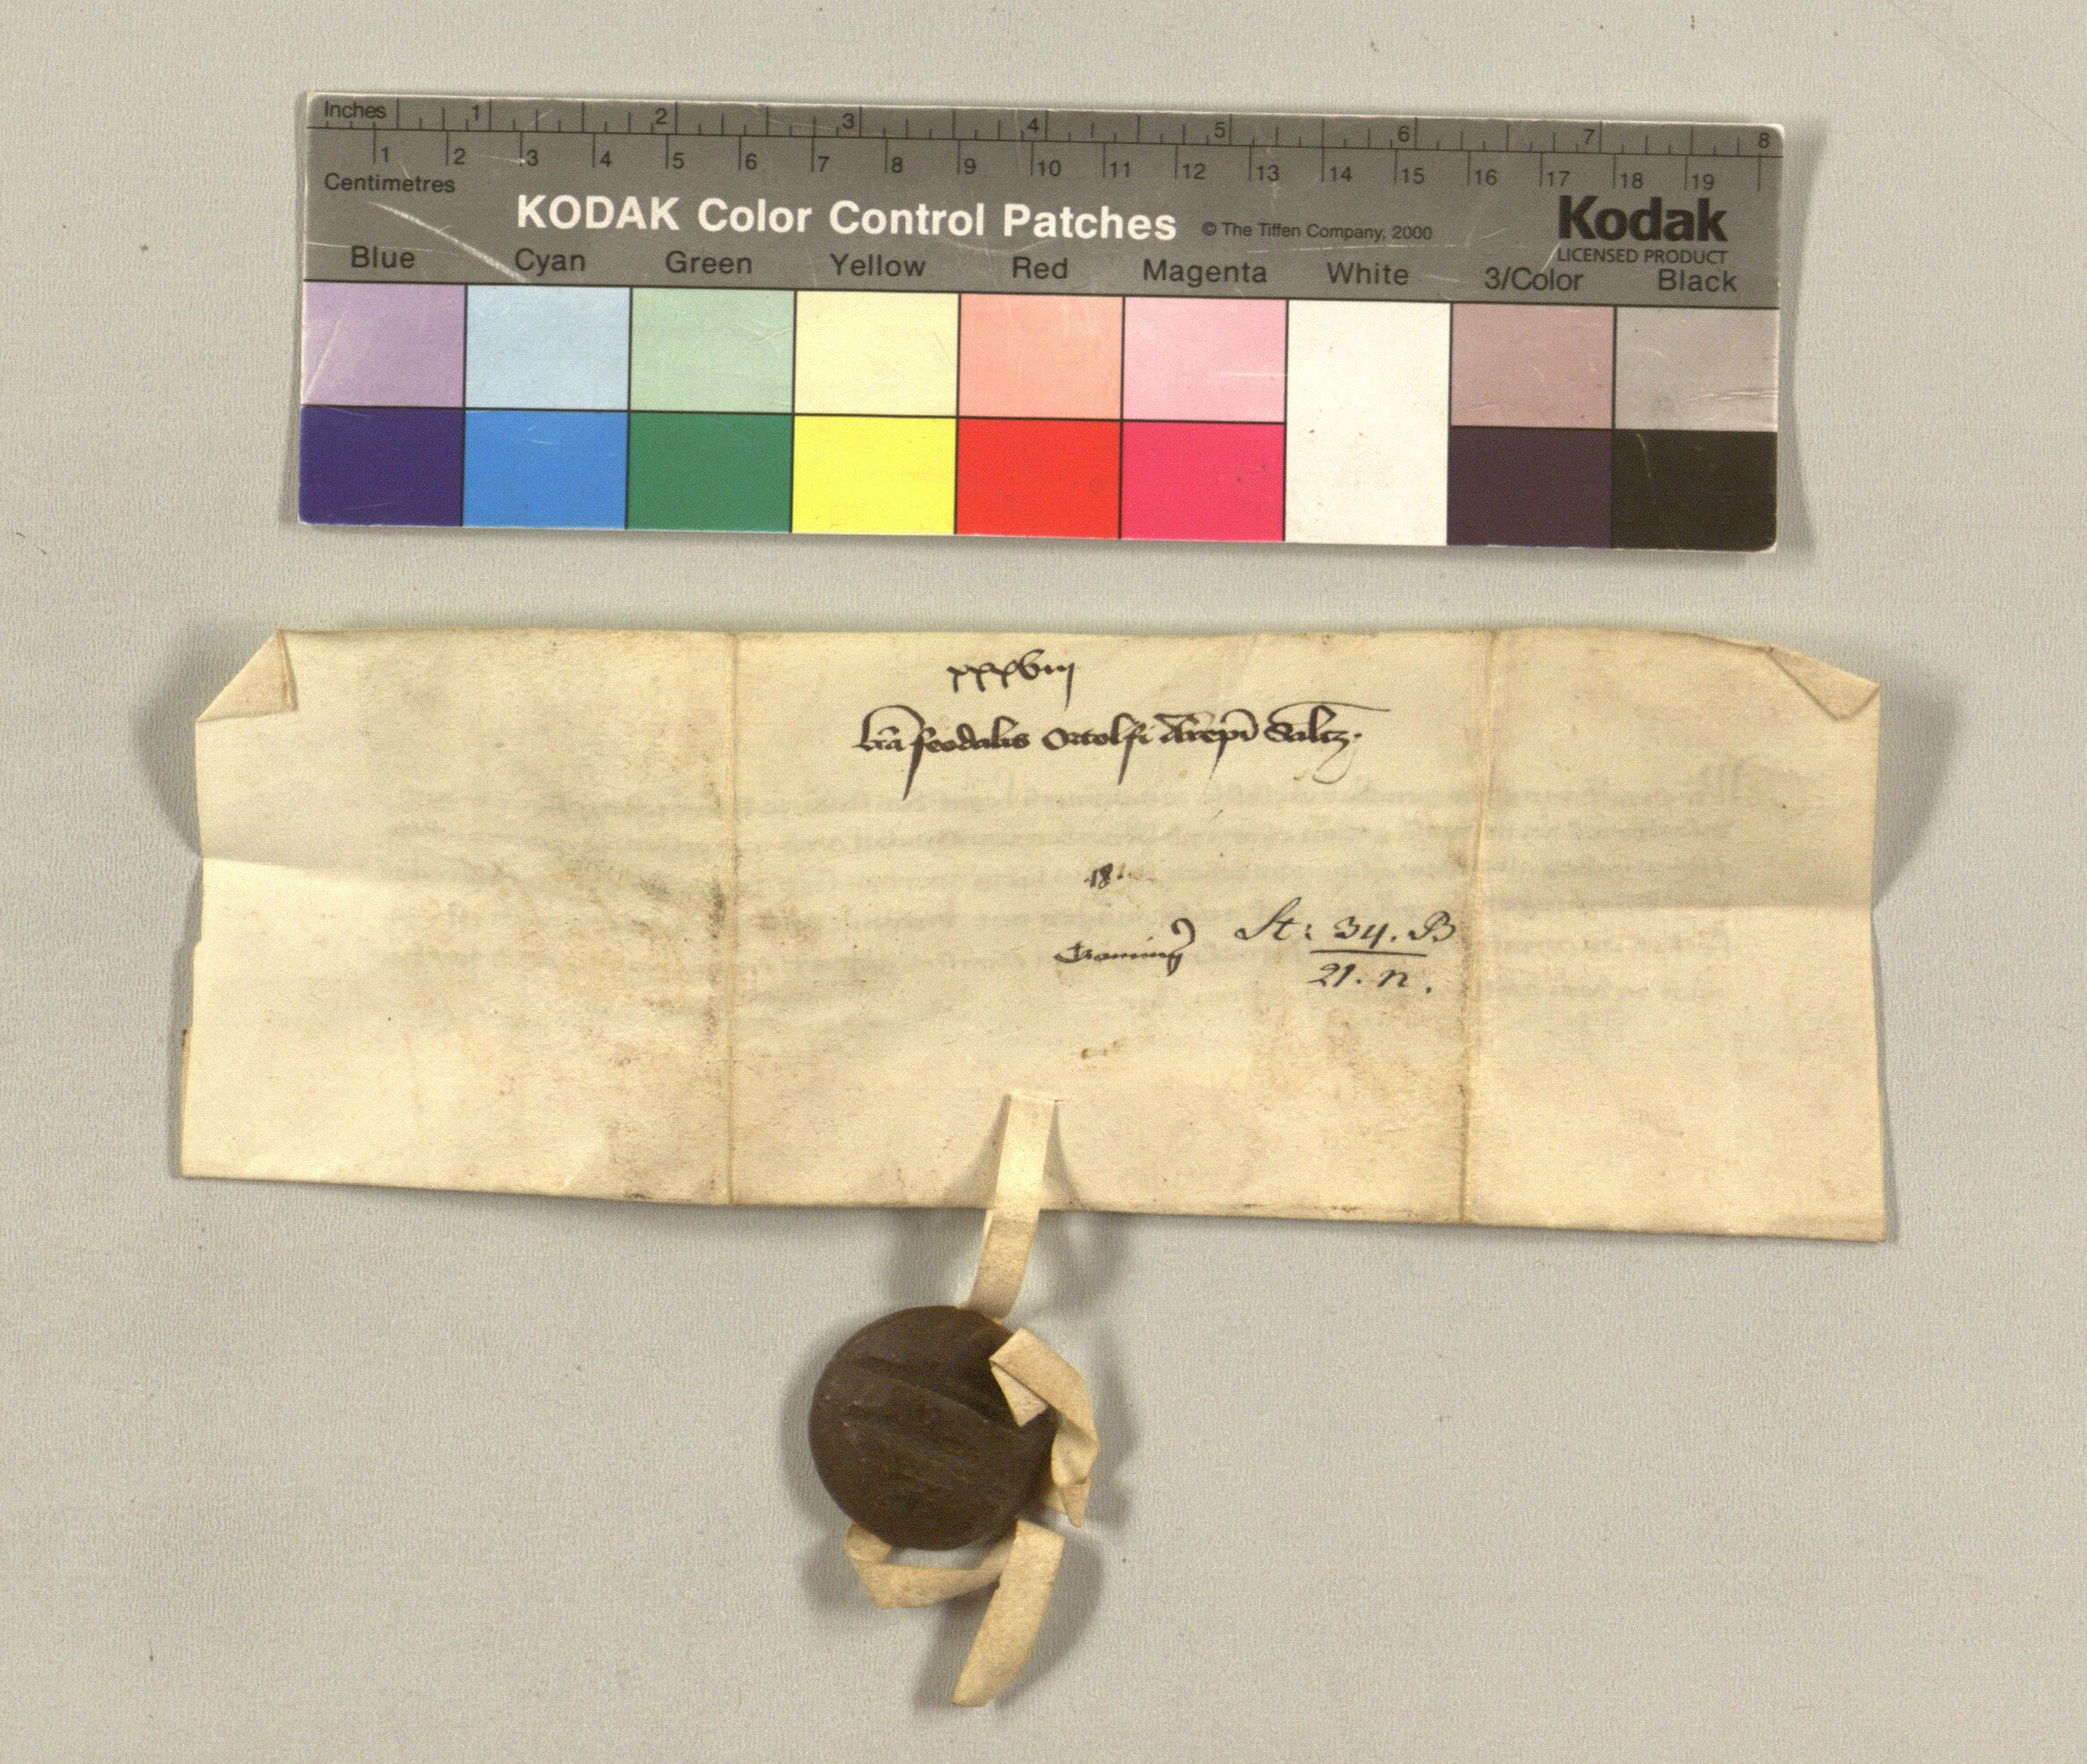 Inches 1 2 3 4 5 6 7 8
1 2 3 4 5 6 7 8 9 10 11 12 13 14 15 16 17 18 19
Centimetres
KODAK Color Control Patches © The Tiffen Company, 2000 Kodak
LICENSED PRODUCT
Blue Cyan Green Yellow Red Magenta White 3/Color Black
xxxviii
lr̄a feodalis Ortolfi Ar̄epī Saltz.
.18.
St: 34. B
21. n.